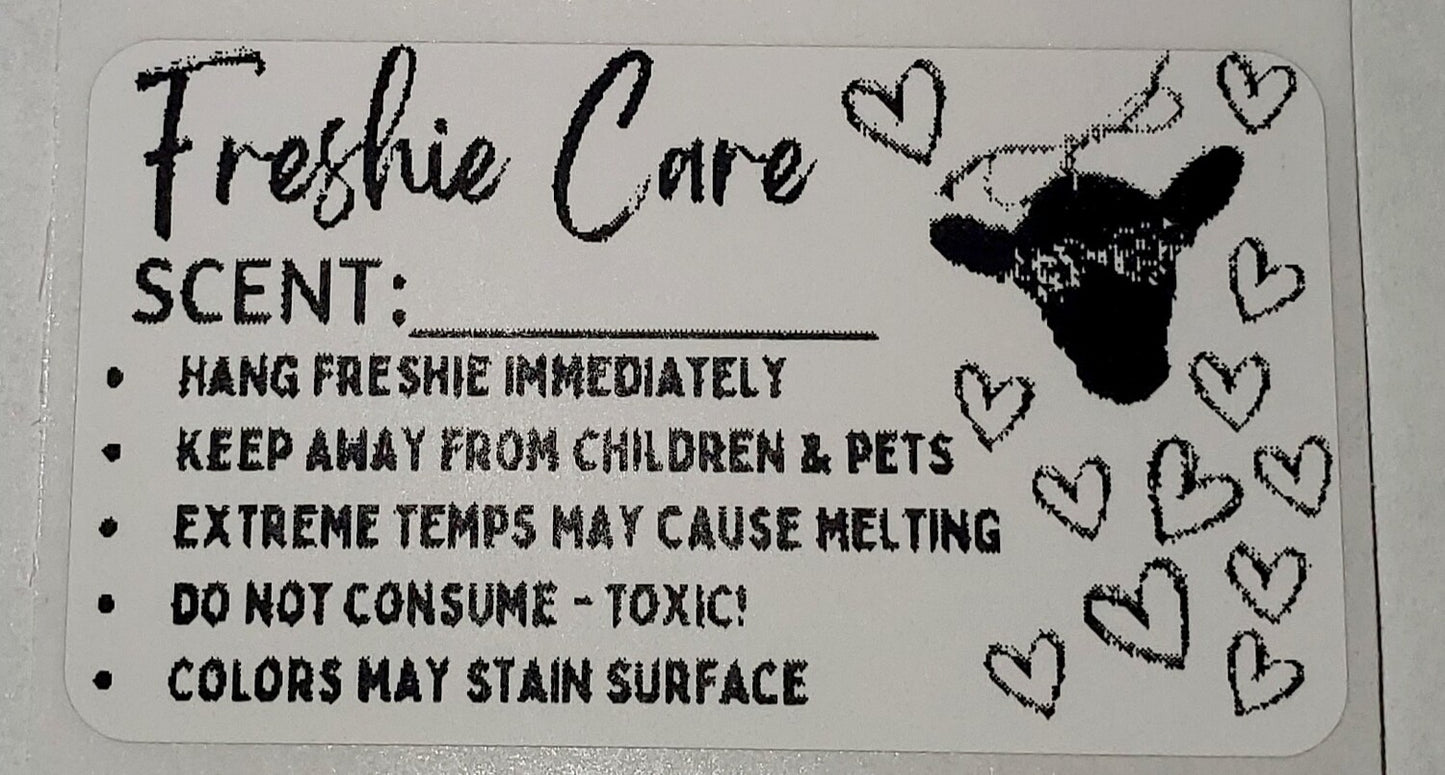 Freshie Care
SCENT:_______________
• HANG FRESHIE IMMEDIATELY
• KEEP AWAY FROM CHILDREN & PETS
• EXTREME TEMPS MAY CAUSE MELTING
• DO NOT CONSUME - TOXIC!
• COLORS MAY STAIN SURFACE